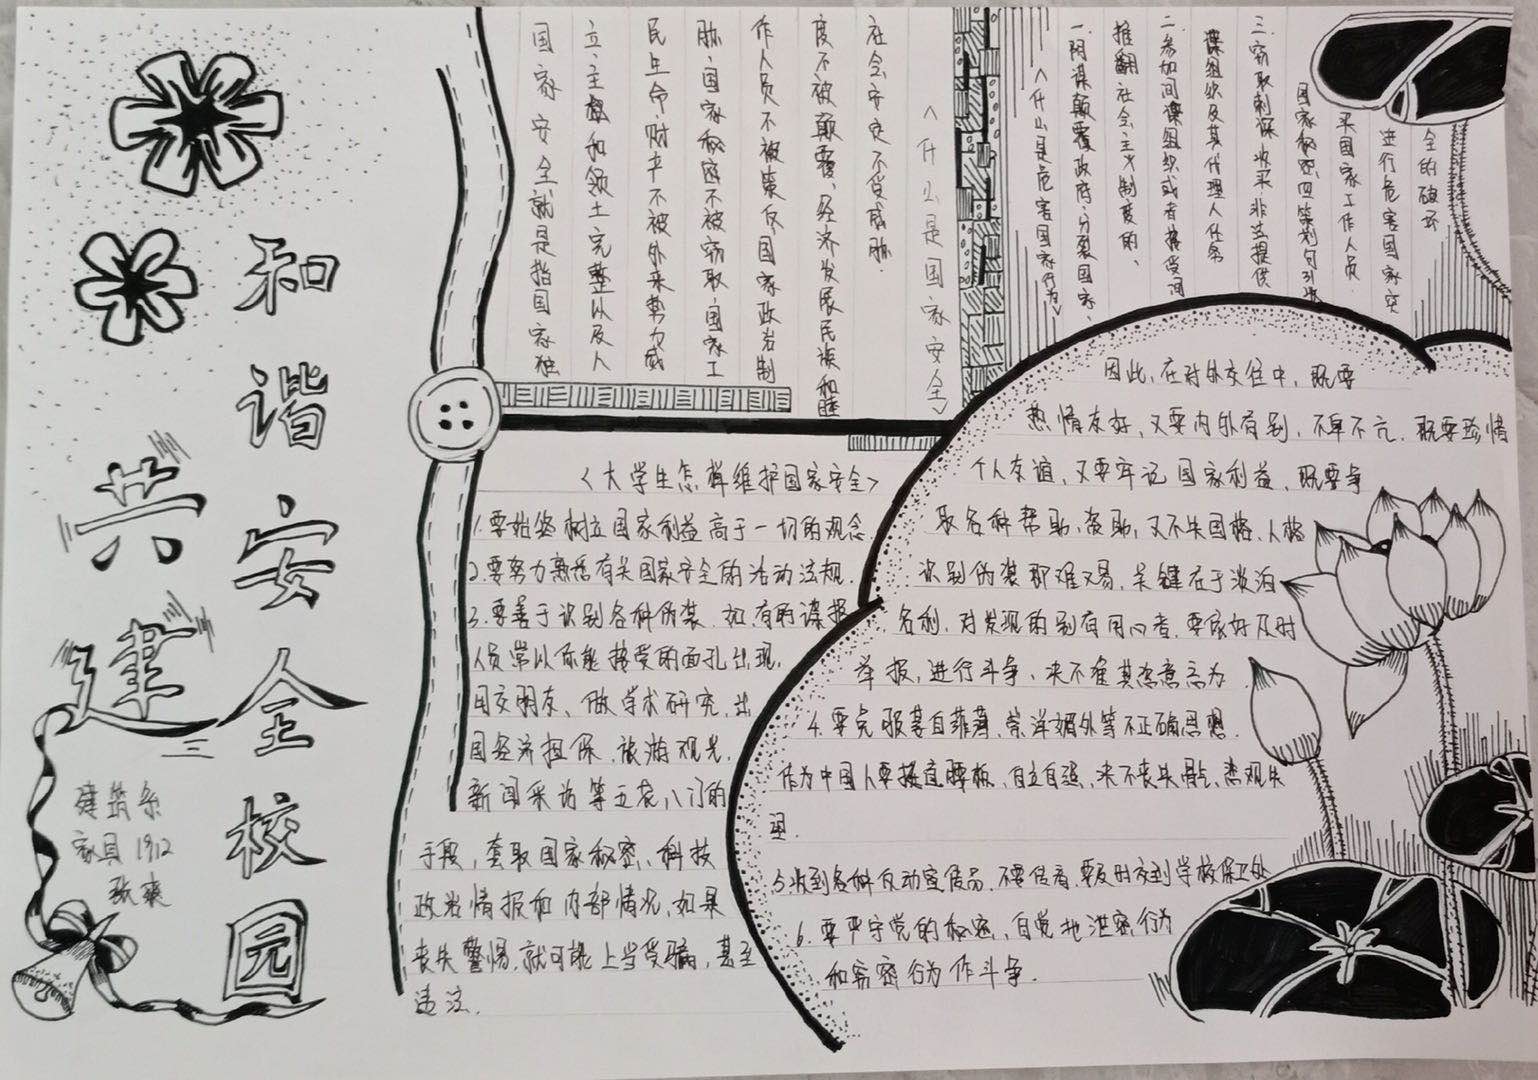 共建
和谐安全校园
建筑系
家具1912
张爽
<什么是国家安全>
国家安全就是指国家独
立、主权和领土完整以及人
民生命财产不被外来势力威
胁、国家秘密不被窃取、国家工
作人员不被策反、国家政治制
度不被颠覆、经济发展、民族和睦
社会安定不受威胁.
<什么是危害国家行为>
一.阴谋颠覆政府、分裂国家、
推翻社会主义制度的、
二.参加间谍组织或者接受间
谍组织及其代理人任务
三.窃取刺探收买非法提供
国家秘密.四策划勾引收
买国家工作人员
进行危害国家安
全的破坏
<大学生怎样维护国家安全>
1.要始终树立国家利益高于一切的观念
2.要努力熟悉有关国家安全的活动法规.
3.要善于识别各种伪装.如.有的谍报
人员常以你能接受的面孔出现.
用交朋友、做学术研究、出
国经济担保.旅游观光.
新闻采访等五花八门的
手段，套取国家秘密、科技
政治情报和内部情况.如果
丧失警惕.就可能上当受骗，甚至
违法.
因此，在对外交往中，既要
热情友好，又要内外有别、不卑不亢.既要珍惜
个人友谊，又要牢记国家利益、既要争
取各种帮助、资助，又不失国格、人格
识别伪装即难又易，关键在于淡泊
名利，对发现的别有用心者，要做好及时
举报，进行斗争、决不准其恣意言为
4.要克服妄自菲薄、崇洋媚外等不正确思想.
作为中国人要挺直腰板，自立自强、决不丧失骨气、悲观失
望.
5收到各种反动宣传品.不要传看.要及时交到学校保卫处
6.要严守党的秘密，自觉地泄密行为
和窃密行为作斗争.